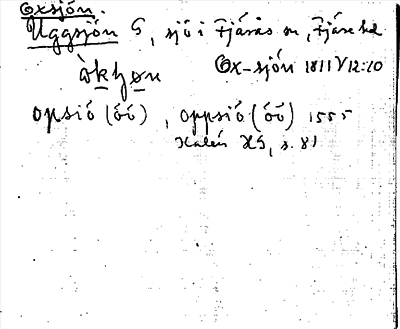 Oxsjön.
Uggsjön S, sjö i Fjärås sn, Fjäre hd
Ox-sjön 1811 V 12:10
opsió (óó), oppsió (óó) 1555
Kalén HS, s. 81